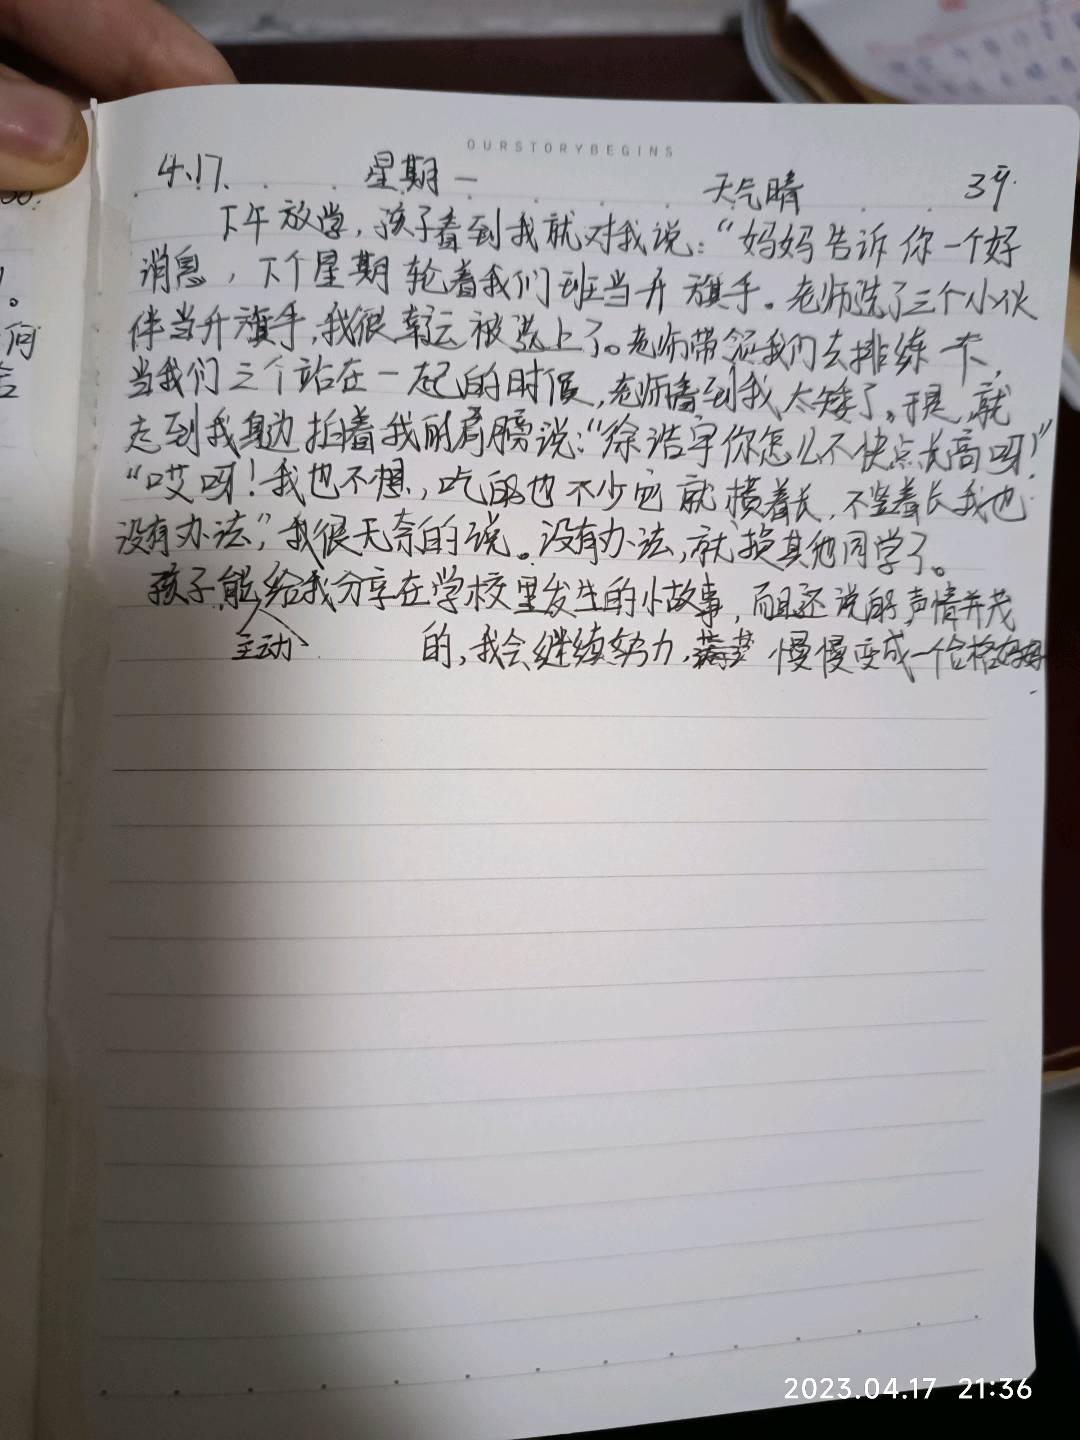 OURSTORYBEGINS
4.17. 星期一 天气晴
下午放学，孩子看到我就对我说：“妈妈告诉你一个好
消息，下个星期轮着我们班当升旗手。老师选了三个小伙
伴当升旗手，我很幸运被选上了。老师带领我们去排练一下，
当我们三个站在一起的时候，老师看到我太矮了。于是就
走到我身边拍着我的肩膀说：“徐浩宇你怎么不快点长高呀！”
“哎呀！我也不想，吃的也不少它就横着长，不竖着长我也
没有办法”，我很无奈的说。没有办法，就换其他同学了。
孩子能给我分享在学校里发生的小故事，而且还说的声情并茂
主动
的，我会继续努力，慢慢变成一个合格妈妈
2023.04.17 21:36